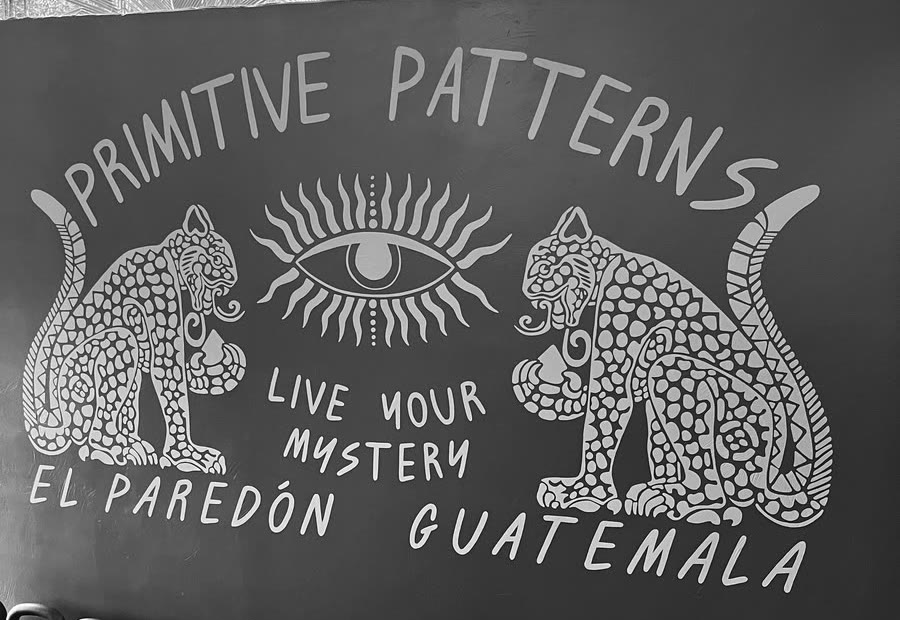 PRIMITIVE PATTERNS
LIVE YOUR
MYSTERY
EL PAREDÓN GUATEMALA